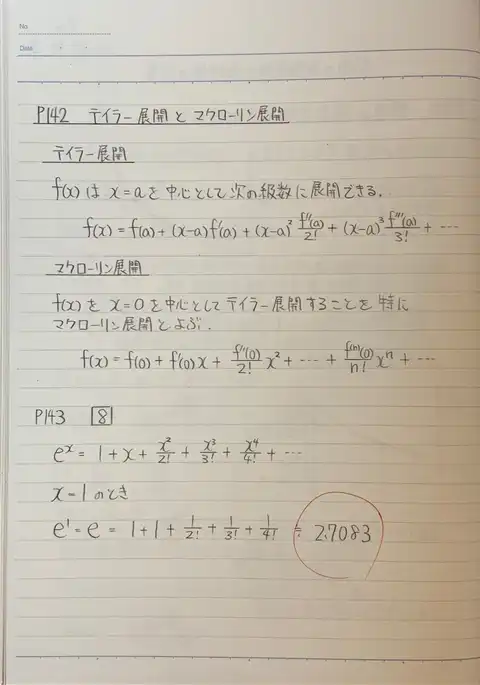 No
Date
P142 テイラー展開とマクローリン展開
テイラー展開
f(x) は x=a を中心として次の級数に展開できる.
f(x) = f(a) + (x-a)f'(a) + (x-a)² f''(a)/2! + (x-a)³ f'''(a)/3! + ⋯
マクローリン展開
f(x) を x=0 を中心としてテイラー展開することを特に
マクローリン展開とよぶ.
f(x) = f(0) + f'(0)x + f''(0)/2! x² + ⋯ + f⁽ⁿ⁾(0)/n! xⁿ + ⋯
P143 8
eˣ = 1 + x + x²/2! + x³/3! + x⁴/4! + ⋯
x=1のとき
e¹ = e = 1 + 1 + 1/2! + 1/3! + 1/4! ≒ 2.7083